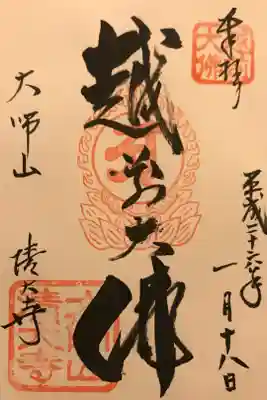 奉拝
平成二十六年
一月十八日
越前大佛
大師山
清大寺